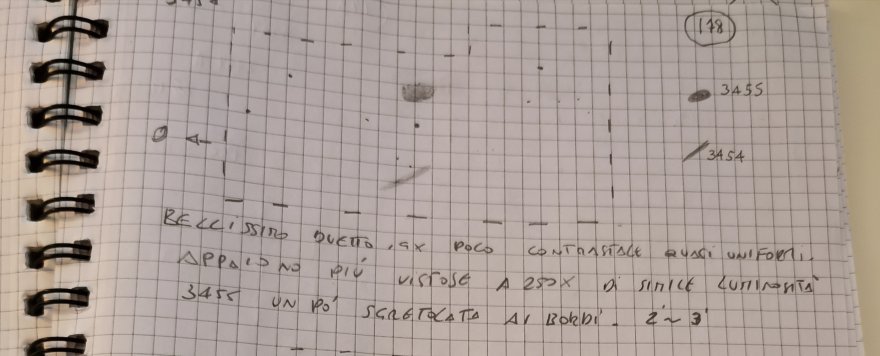 178
3455
3454
O
BELLISSIMO DUETTO, GX POCO CONTRASTATE QUASI UNIFORMI.
APPAIONO PIÙ VISTOSE A 250X DI SIMILE LUMINOSITÀ
3455 UN PÒ SGRETOLATA AI BORDI. 2'~3'